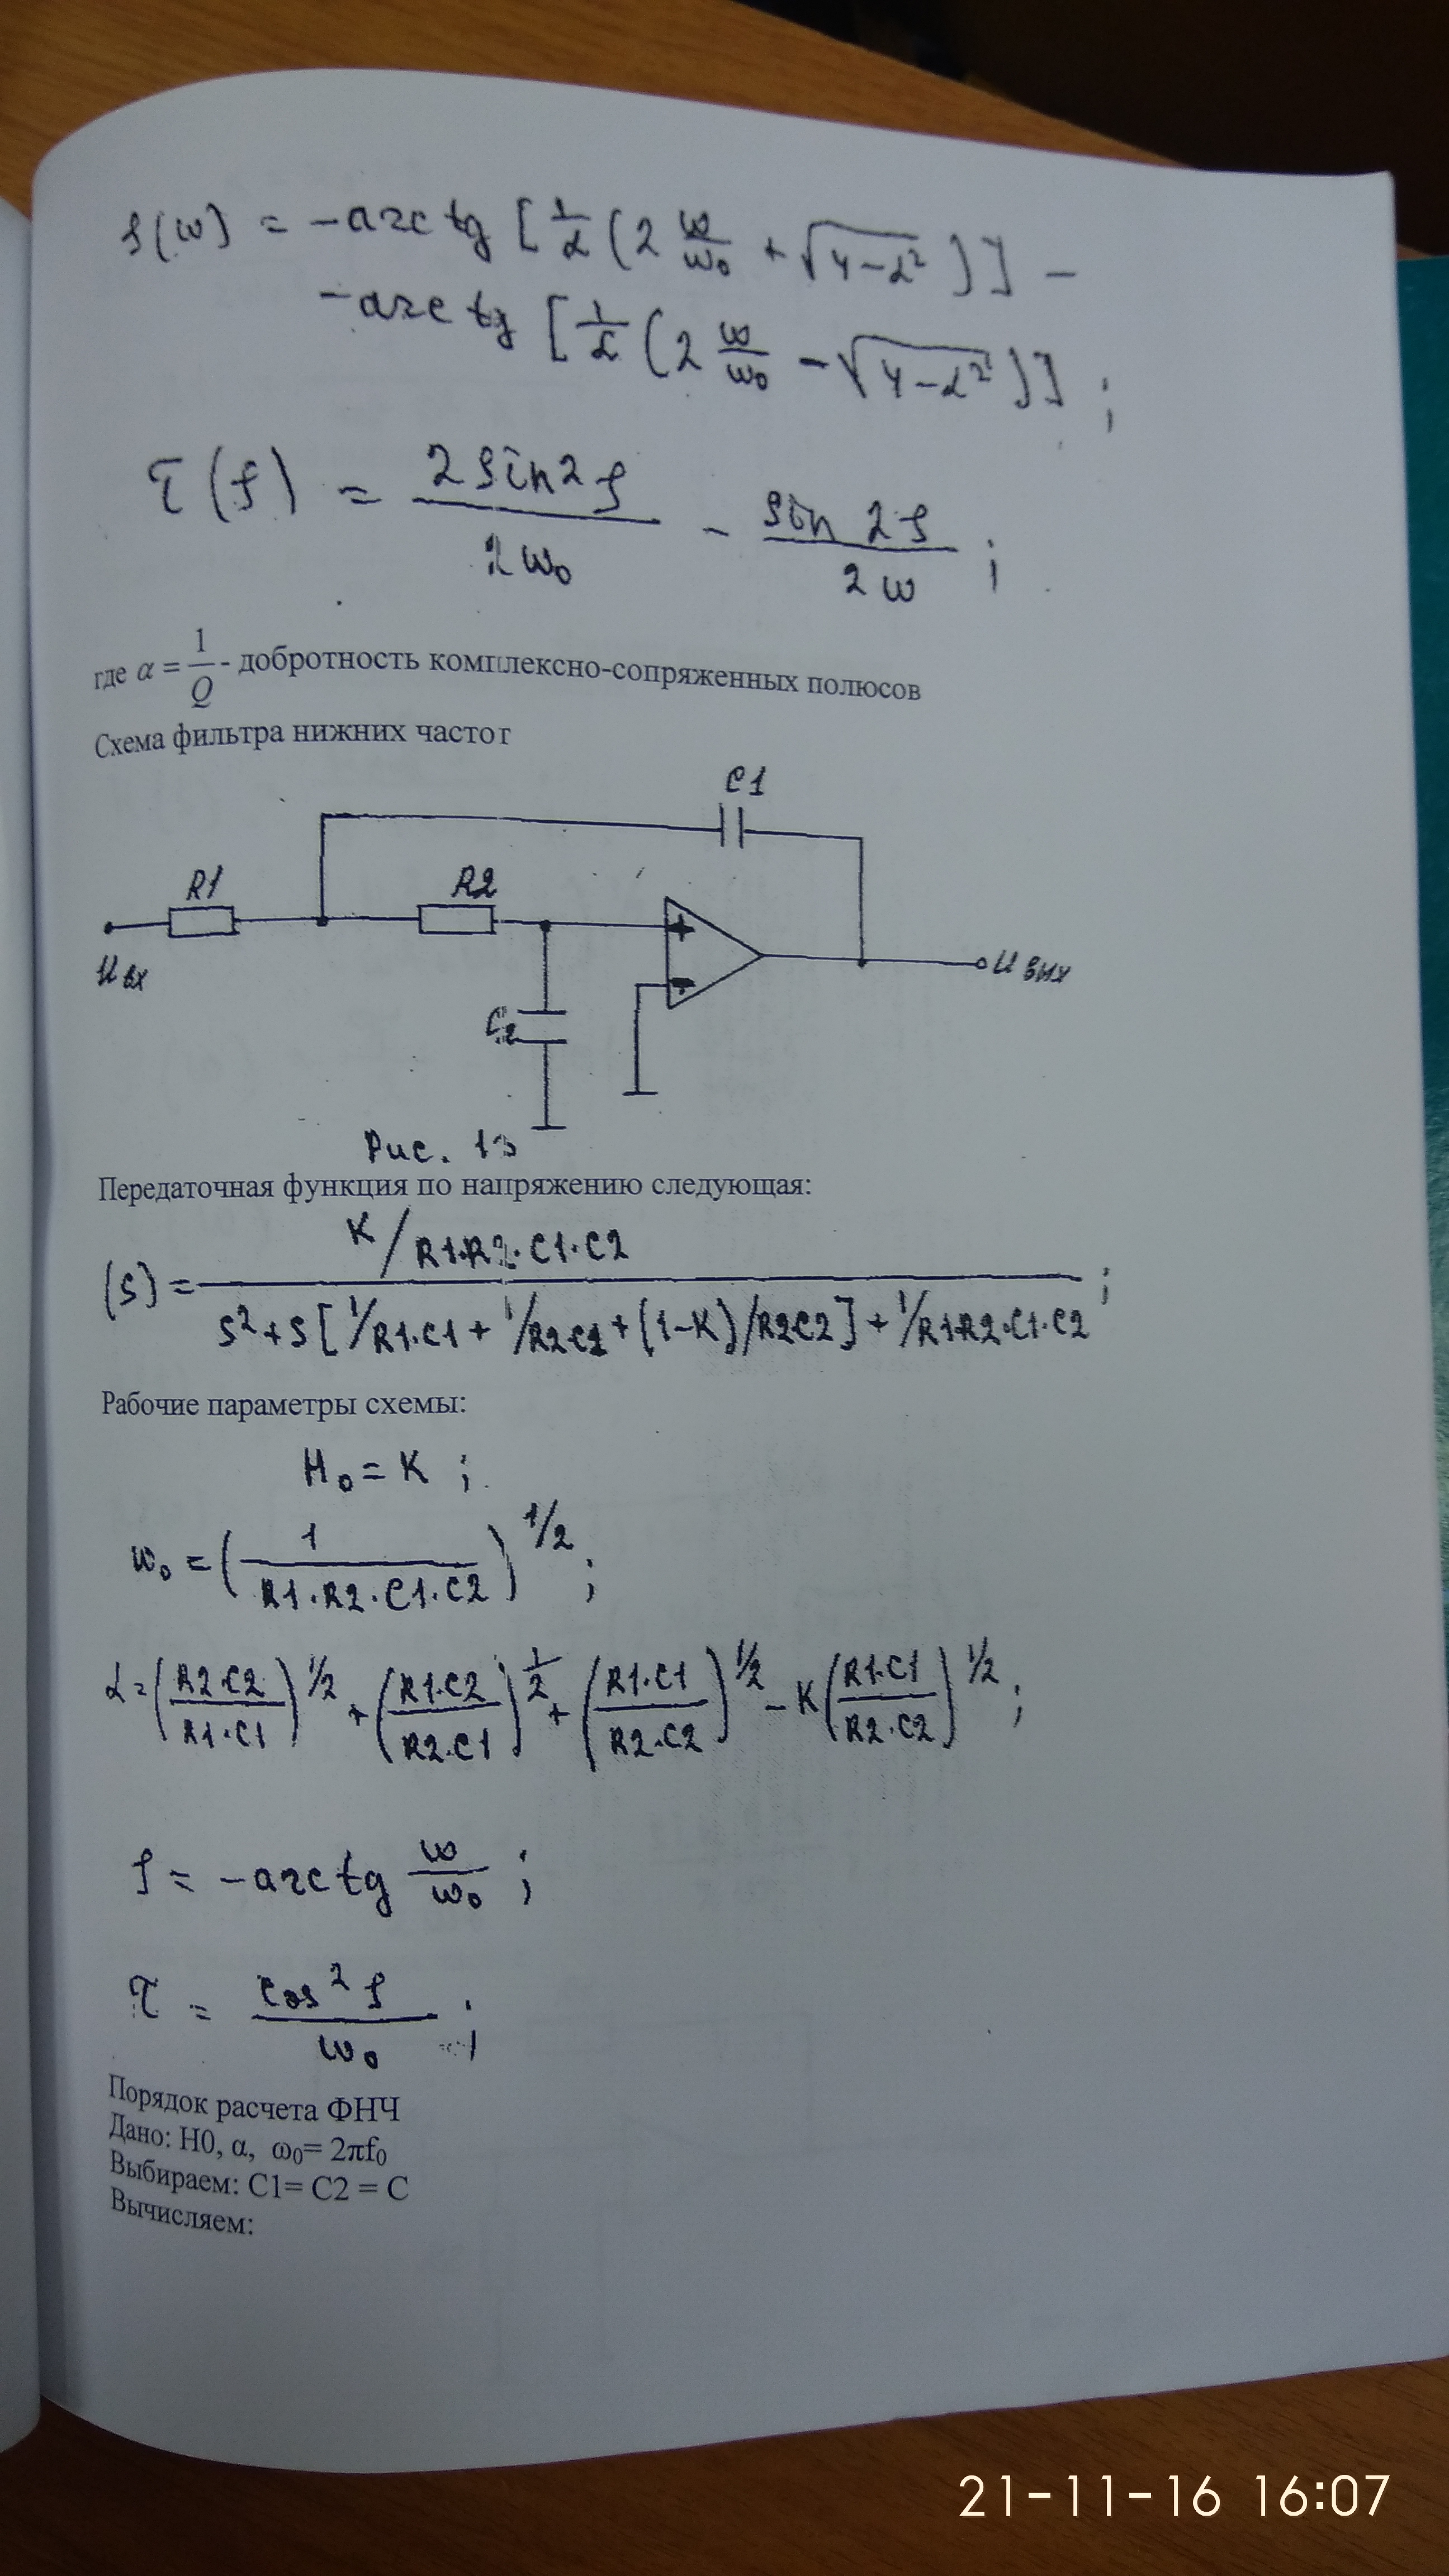 φ(ω) = -arctg [1/α (2 ω/ω₀ + √(4-α²))] -
-arctg [1/α (2 ω/ω₀ - √(4-α²))] ;
τ(φ) = 2 sin2φ / 2ω₀ - sin 2φ / 2ω ;
где α = 1/Q - добротность комплексно-сопряженных полюсов
Схема фильтра нижних частот
C1
R1 R2
+
Uвх - Uвых
C2
Рис. 13
Передаточная функция по напряжению следующая:
(S) = K/R1·R2·C1·C2 / S²+S[1/R1·C1 + 1/R2C1 + (1-K)/R2C2] + 1/R1·R2·C1·C2 ;
Рабочие параметры схемы:
H₀ = K ;
ω₀ = (1 / R1·R2·C1·C2)^1/2 ;
α = (R2·C2 / R1·C1)^1/2 + (R1·C2 / R2·C1)^1/2 + (R1·C1 / R2·C2)^1/2 - K(R1·C1 / R2·C2)^1/2 ;
φ = -arctg ω/ω₀ ;
τ = cos²φ / ω₀ ;
Порядок расчета ФНЧ
Дано: H0, α, ω₀= 2πf₀
Выбираем: C1= C2 = C
Вычисляем:
21-11-16 16:07